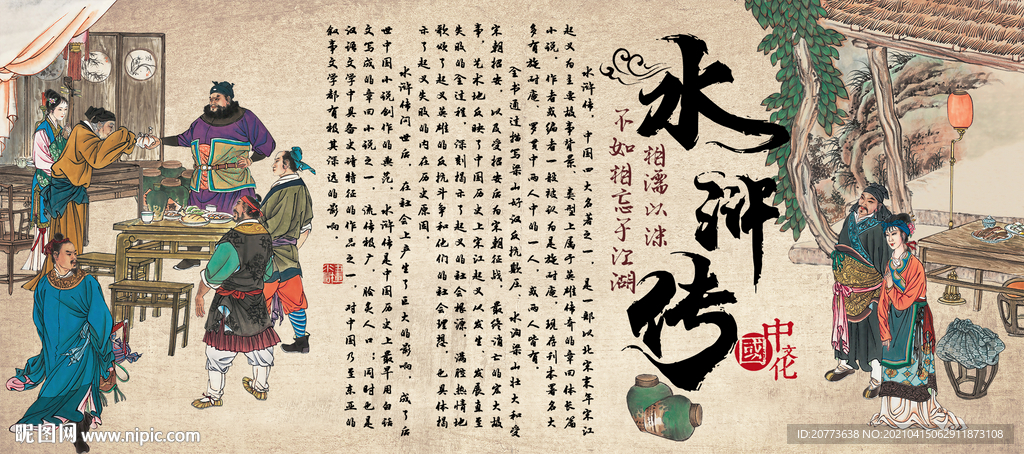 水浒传
中国
文化
相濡以沫
不如相忘于江湖
水浒传，中国四大名著之一，是一部以北宋末年宋江
起义为主要故事背景、类型上属于英雄传奇的章回体长篇
小说。作者或编者一般被认为是施耐庵，现存刊本署名大
多有施耐庵、罗贯中两人中的一人，或两人皆有。
全书通过描写梁山好汉反抗欺压、水泊梁山壮大和受
宋朝招安，以及受招安后为宋朝征战，最终消亡的宏大故
事，艺术地反映了中国历史上宋江起义从发生、发展直至
失败的全过程，深刻揭示了起义的社会根源，满腔热情地
歌颂了起义英雄的反抗斗争和他们的社会理想，也具体揭
示了起义失败的内在历史原因。
水浒传问世后，在社会上产生了巨大的影响，成了后
世中国小说创作的典范。水浒传是中国历史上最早用白话
文写成的章回小说之一，流传极广，脍炙人口；同时也是
汉语文学中具备史诗特征的作品之一，对中国乃至东亚的
叙事文学都有极其深远的影响
昵图网 www.nipic.com
ID:20773638 NO:20210415062911873108